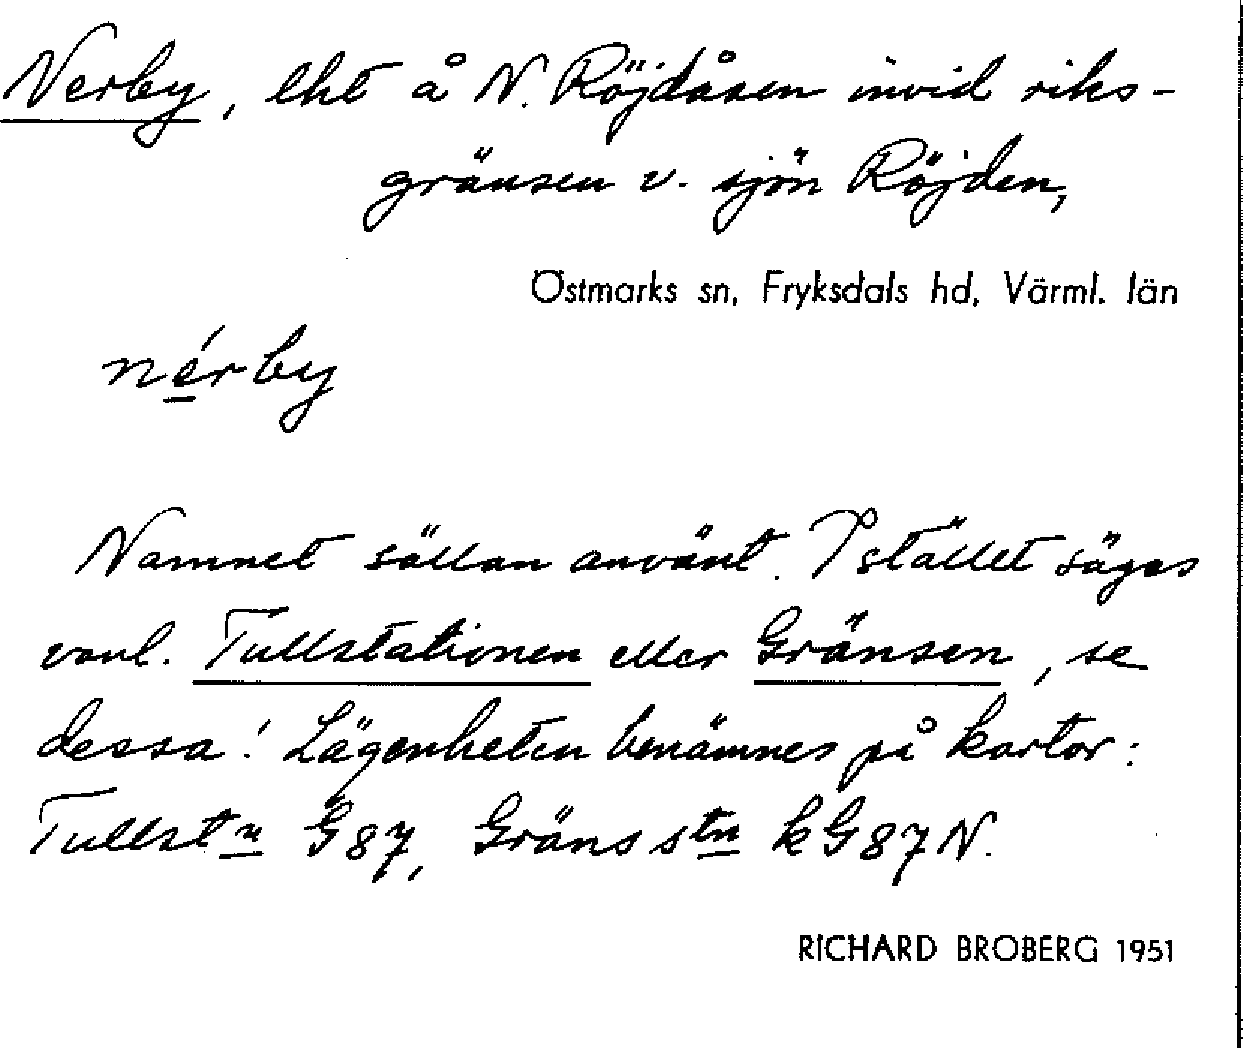 Nerby, lht å N. Röjdåsen invid riks-
gränsen v. sjön Röjden,
Östmarks sn, Fryksdals hd, Värml. län
nérby
Namnet sällan använt. I stället säges
vanl. Tullstationen eller Gränsen, se
dessa! Lägenheten benämnes på kartor:
Tullstn G87, Gränsstn kG87N.
RICHARD BROBERG 1951